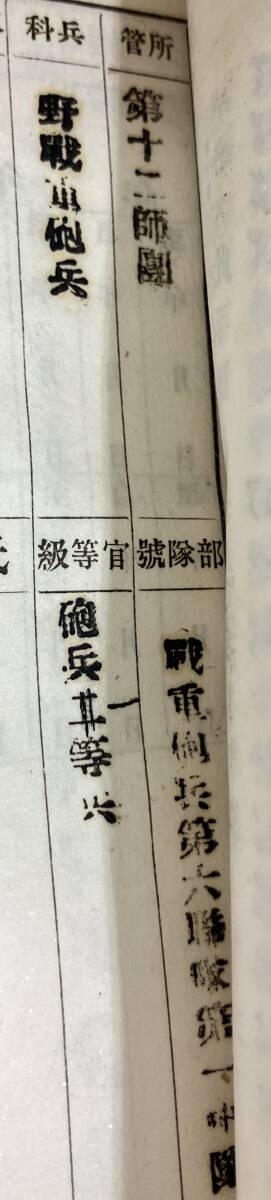 管所
第十二師團
科兵
野戰重砲兵
號隊部
戰重砲兵第六聯隊第一中
級等官
砲兵二等兵
一